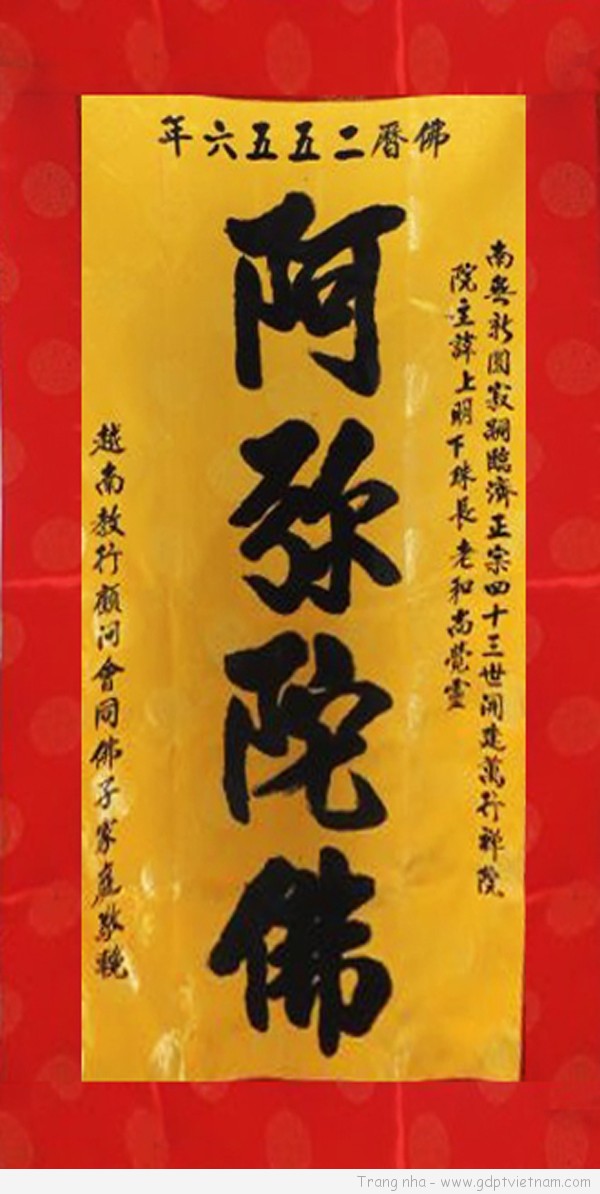 佛曆二五五六年
南無新圓寂嗣臨濟正宗四十三世開建萬行禪院
院主諱上明下珠長老和尚覺靈
阿弥陀佛
越南教行顧問會同佛子家庭敬輓
Trang nha - www.gdptvietnam.com